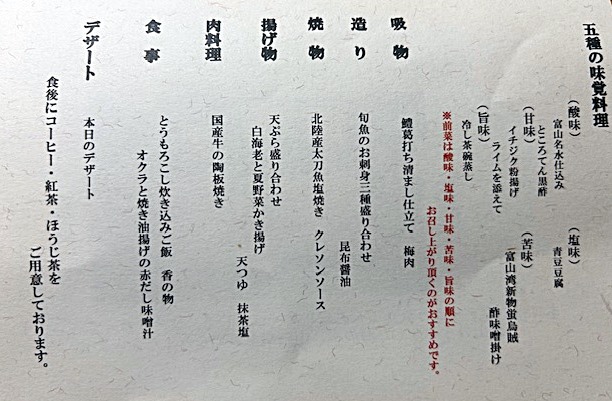 五種の味覚料理
(酸味)
富山名水仕込み
ところてん黒酢
(塩味)
青豆豆腐
(甘味)
イチジク粉揚げ
ライムを添えて
(苦味)
富山湾新物蛍烏賊
酢味噌掛け
(旨味)
冷し茶碗蒸し
※前菜は酸味・塩味・甘味・苦味・旨味の順に
お召し上がり頂くのがおすすめです。
吸物 鱧葛打ち清まし仕立て 梅肉
造り 旬魚のお刺身三種盛り合わせ
昆布醤油
焼物 北陸産太刀魚塩焼き クレソンソース
揚げ物 天ぷら盛り合わせ
白海老と夏野菜かき揚げ
天つゆ 抹茶塩
肉料理 国産牛の陶板焼き
食事 とうもろこし炊き込みご飯 香の物
オクラと焼き油揚げの赤だし味噌汁
デザート 本日のデザート
食後にコーヒー・紅茶・ほうじ茶を
ご用意しております。